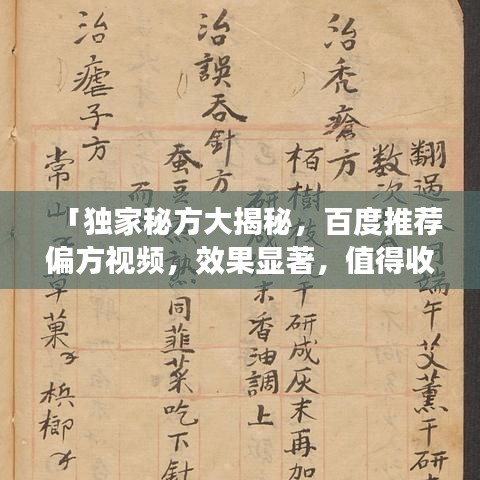 「独家秘方大揭秘，百度推荐
偏方视频，效果显著，值得收
翻過 月端午艾薰干研
数次
治秃瘡方
柏樹枝 干研成灰末再加
研成 末香油調上
治誤吞針方
蚕豆 熟同韮菜吃下針
而
治瘧子方
常山草菓 梹榔